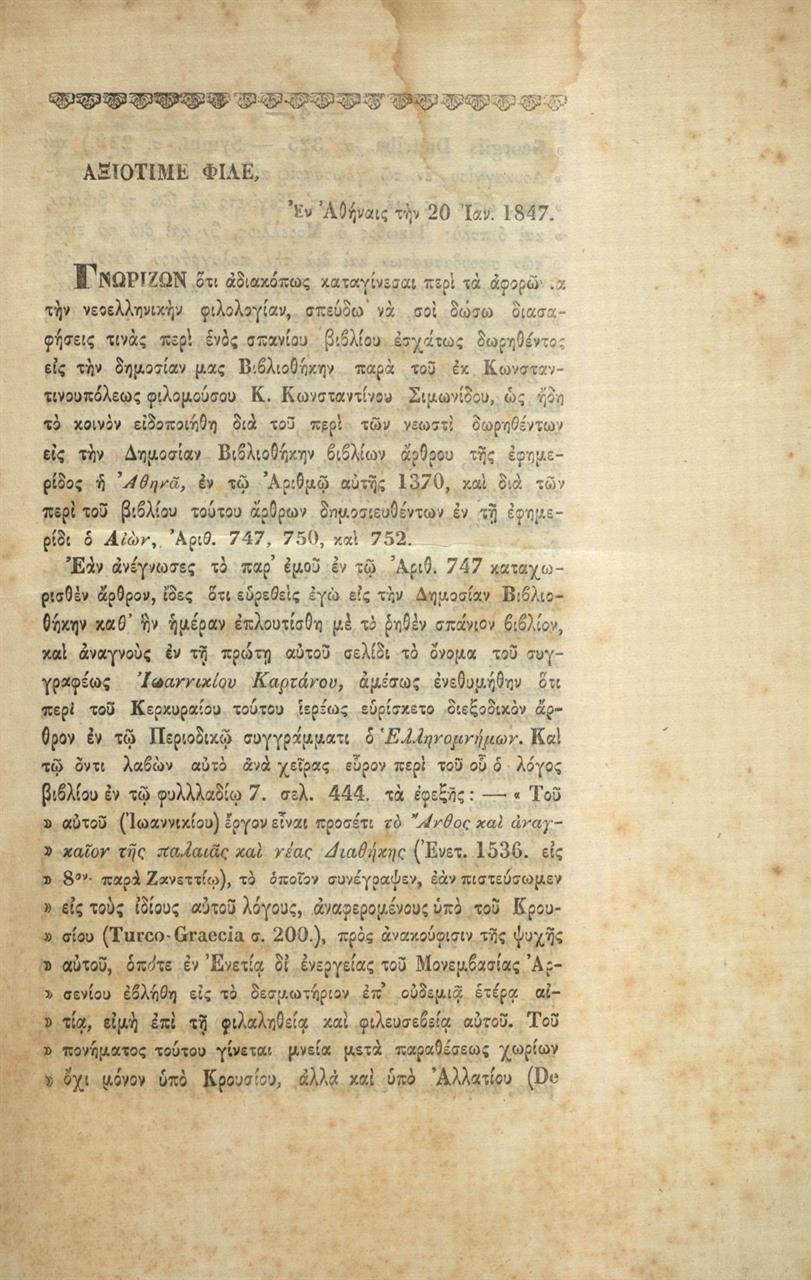 ΑΞΙΟΤΙΜΕ ΦΙΛΕ,
Ἐν Ἀθήναις τὴν 20 Ἰαν. 1847.
ΓΝΩΡΙΖΩΝ ὅτι ἀδιακόπως καταγίνεσαι περὶ τὰ
τὴν νεοελληνικὴν φιλολογίαν, σπεύδω νὰ σοὶ δώσω διασα-
φήσεις τινὰς περὶ ἑνὸς σπανίου βιβλίου ἐσχάτως δωρηθέντος
εἰς τὴν δημοσίαν μας Βιβλιοθήκην παρὰ τοῦ ἐκ Κωνσταν-
τινουπόλεως φιλομούσου Κ. Κωνσταντίνου Σιμωνίδου, ὡς ἤδη
τὸ κοινὸν εἰδοποιήθη διὰ τοῦ περὶ τῶν νεωστὶ δωρηθέντων
εἰς τὴν Δημοσίαν Βιβλιοθήκην βιβλίων ἄρθρου τῆς ἐφημε-
ρίδος ἡ Ἀθηνᾶ, ἐν τῷ Ἀριθμῷ αὐτῆς 1370, καὶ διὰ τῶν
περὶ τοῦ βιβλίου τούτου ἄρθρων δημοσιευθέντων ἐν τῇ ἐφημε-
ρίδι ὁ Αἰών, Ἀριθ. 747, 750, καὶ 752.
Ἐὰν ἀνέγνωσες τὸ παρ' ἐμοῦ ἐν τῷ Ἀριθ. 747 καταχω-
ρισθὲν ἄρθρον, ἶδες ὅτι εὑρεθεὶς ἐγὼ εἰς τὴν Δημοσίαν Βιβλιο-
θήκην καθ' ἣν ἡμέραν ἐπλουτίσθη μὲ τὸ ῥηθὲν σπάνιον βιβλίον,
καὶ ἀναγνοὺς ἐν τῇ πρώτῃ αὐτοῦ σελίδι τὸ ὄνομα τοῦ συγ-
γραφέως Ἰωαννικίου Καρτάνου, ἀμέσως ἐνεθυμήθην ὅτι
περὶ τοῦ Κερκυραίου τούτου ἱερέως εὑρίσκετο διεξοδικὸν ἄρ-
θρον ἐν τῷ Περιοδικῷ συγγράμματι ὁ Ἑλληνομνήμων. Καὶ
τῷ ὄντι λαβὼν αὐτὸ ἀνὰ χεῖρας εὗρον περὶ τοῦ οὗ ὁ λόγος
βιβλίου ἐν τῷ φυλλλαδίῳ 7. σελ. 444. τὰ ἐφεξῆς : — « Τοῦ
» αὐτοῦ (Ἰωαννικίου) ἔργον εἶναι προσέτι τὸ Ἄνθος καὶ ἀναγ-
» καῖον τῆς παλαιᾶς καὶ νέας Διαθήκης (Ἐνετ. 1536. εἰς
» 8ον. παρὰ Ζανεττίῳ), τὸ ὁποῖον συνέγραψεν, ἐὰν πιστεύσωμεν
» εἰς τοὺς ἰδίους αὐτοῦ λόγους, ἀναφερομένους ὑπὸ τοῦ Κρου-
» σίου (Turco-Graecia σ. 200.), πρὸς ἀνακούφισιν τῆς ψυχῆς
» αὐτοῦ, ὁπότε ἐν Ἐνετίᾳ δι' ἐνεργείας τοῦ Μονεμβασίας Ἀρ-
» σενίου ἐβλήθη εἰς τὸ δεσμωτήριον ἐπ' οὐδεμιᾷ ἑτέρᾳ αἰ-
» τίᾳ, εἰμὴ ἐπὶ τῇ φιλαληθείᾳ καὶ φιλευσεβείᾳ αὐτοῦ. Τοῦ
» πονήματος τούτου γίνεται μνεία μετὰ παραθέσεως χωρίων
» ὄχι μόνον ὑπὸ Κρουσίου, ἀλλὰ καὶ ὑπὸ Ἀλλατίου (De